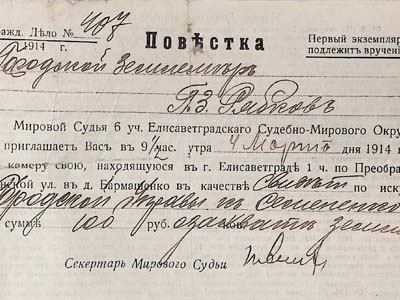 ражд. Дѣло № 407
1914 г.
Повѣстка
Первый экземпляр
подлежитъ вручені
Городской Землемѣръ
П.З. Рябковъ
Мировой Судья 6 уч. Елисаветградскаго Судебно-Мирового Окру
приглашаетъ Васъ в 9 1/2 час. утра 4 Марта дня 1914 г
камеру свою, находящуюся въ г. Елисаветградѣ 1 ч. по Преобра
нской ул. въ д. Бармашенко въ качествѣ по иску
Городской Управы къ Семененко
суммѣ 100 руб. о захватѣ земли
Секертарь Мирового Судьи